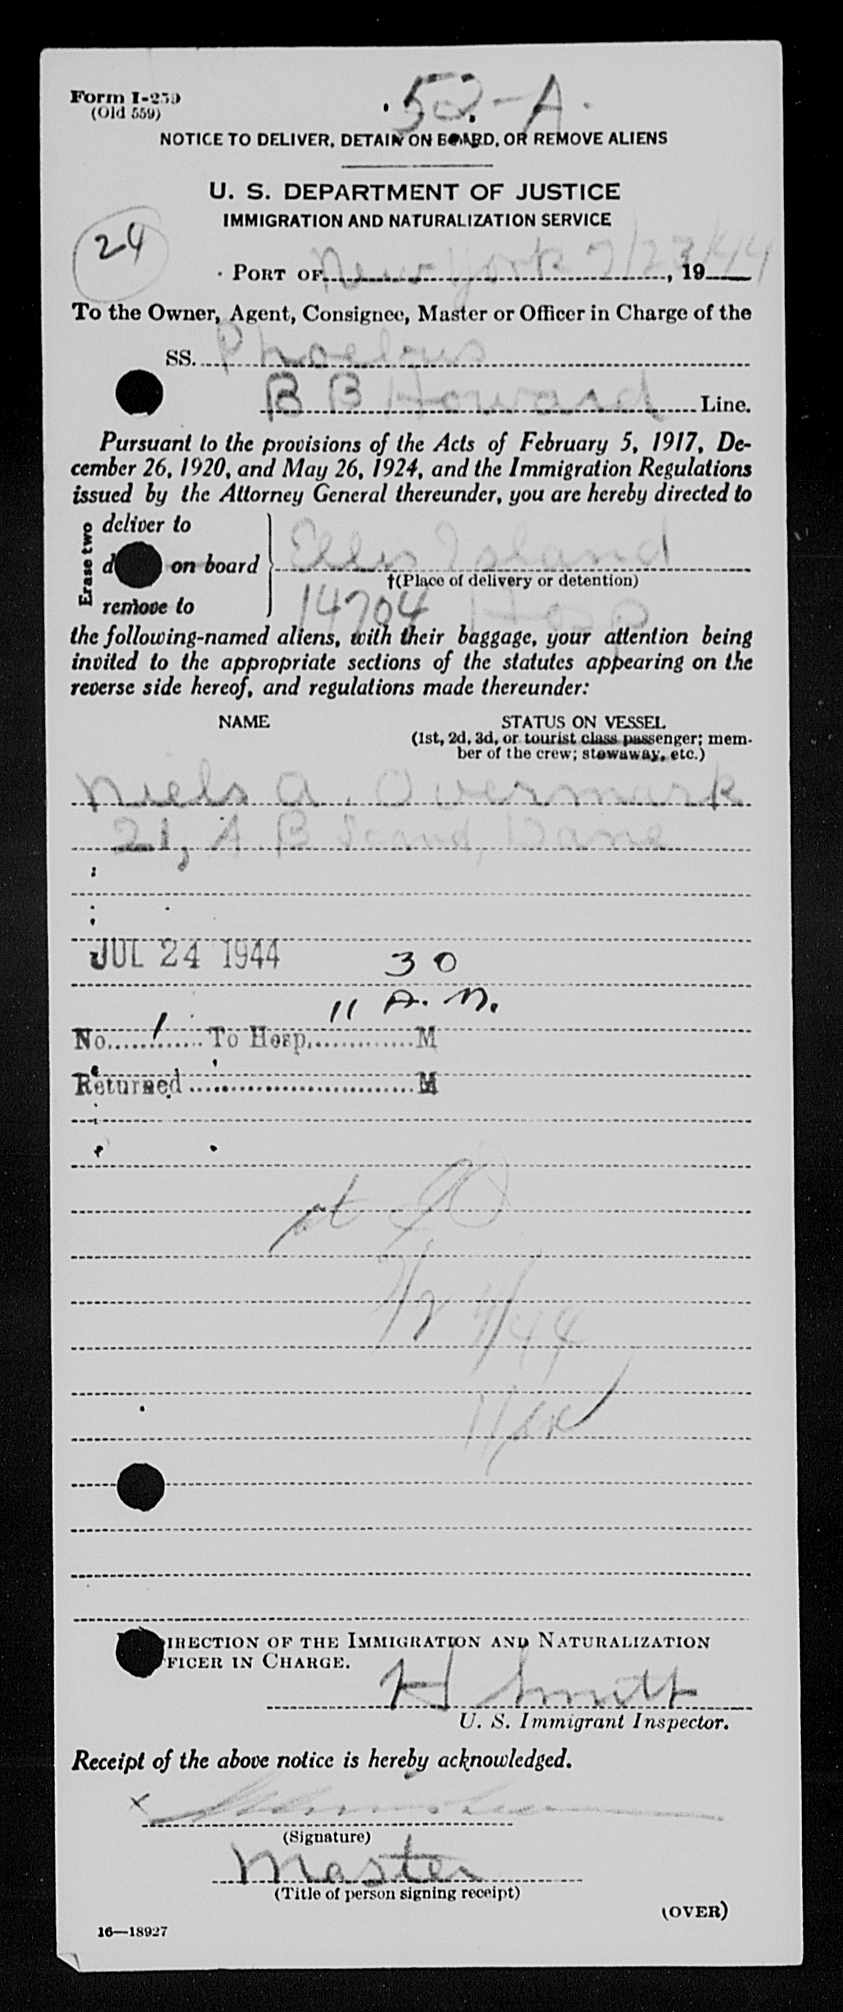 Form I-259
(Old 559)
52-A
NOTICE TO DELIVER, DETAIN ON BOARD, OR REMOVE ALIENS
U. S. DEPARTMENT OF JUSTICE
IMMIGRATION AND NATURALIZATION SERVICE
24
PORT OF New York 7/23/44, 19
To the Owner, Agent, Consignee, Master or Officer in Charge of the
SS. Phoebus
B B Howard Line.
Pursuant to the provisions of the Acts of February 5, 1917, De-
cember 26, 1920, and May 26, 1924, and the Immigration Regulations
issued by the Attorney General thereunder, you are hereby directed to
Erase two
deliver to
d on board Ellis Island
†(Place of delivery or detention)
remove to 14704 Hosp
the following-named aliens, with their baggage, your attention being
invited to the appropriate sections of the statutes appearing on the
reverse side hereof, and regulations made thereunder:
NAME STATUS ON VESSEL
(1st, 2d, 3d, or tourist class passenger; mem-
ber of the crew; stowaway, etc.)
Niels A. Overmark
21, A B Scand, Dane
JUL 24 1944 30
11 A. M.
No. 1 To Hosp. M
Returned M
7/24/44
IRECTION OF THE IMMIGRATION AND NATURALIZATION
FICER IN CHARGE.
H Smith
U. S. Immigrant Inspector.
Receipt of the above notice is hereby acknowledged.
x
(Signature)
Master
(Title of person signing receipt)
(OVER)
16—18927